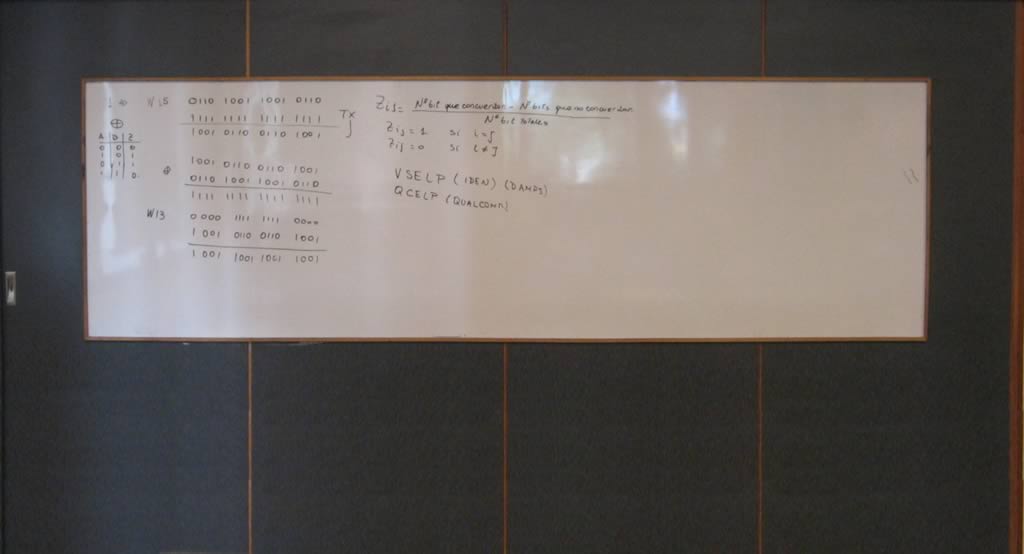 W15 0110 1001 1001 0110
1111 1111 1111 1111
1001 0110 0110 1001
Tx
⊕
A B Z
0 0 0
0 1 1
1 1 0
1001 0110 0110 1001
⊕ 0110 1001 1001 0110
1111 1111 1111 1111
W13 0000 1111 1111 0000
1001 0110 0110 1001
1001 1001 1001 1001
Zij = Nº bit que concuerdan - Nº bits que no concuerdan
Nº bit totales
Zij = 1 si i = j
Zij = 0 si i ≠ j
VSELP (IDEN) (DAMPS)
QCELP (QUALCOMM)